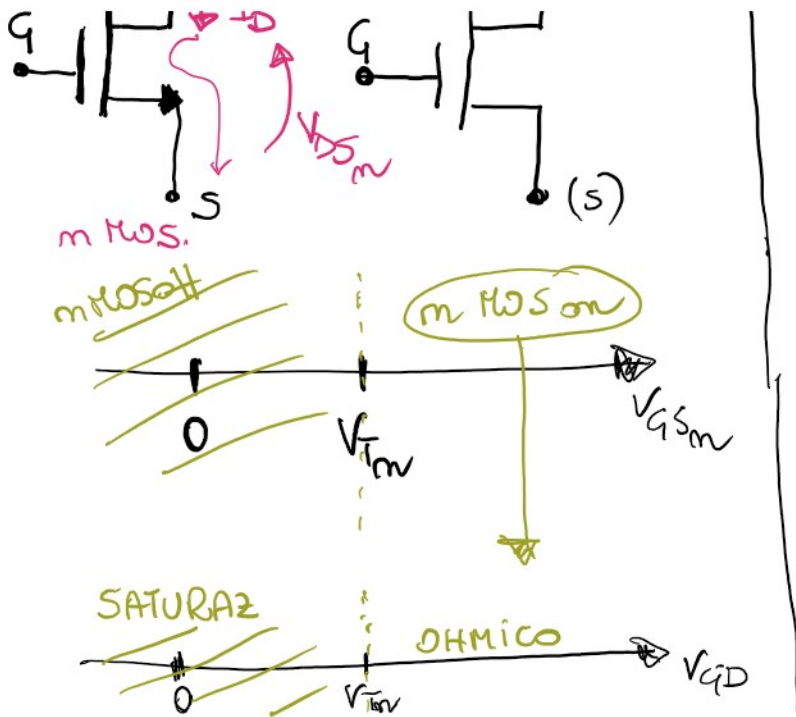 G
D
G
V_DSn
S
(S)
n MOS.
nMOS off
n MOS on
0
V_Tn
V_GSn
SATURAZ
OHMICO
0
V_Tn
V_GD